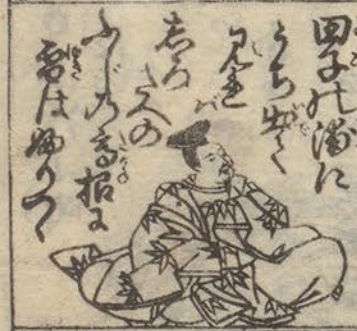 田子の浦に
うち出て
見れば
しろ
たへの
ふじの高根に
雪は降りつゝ